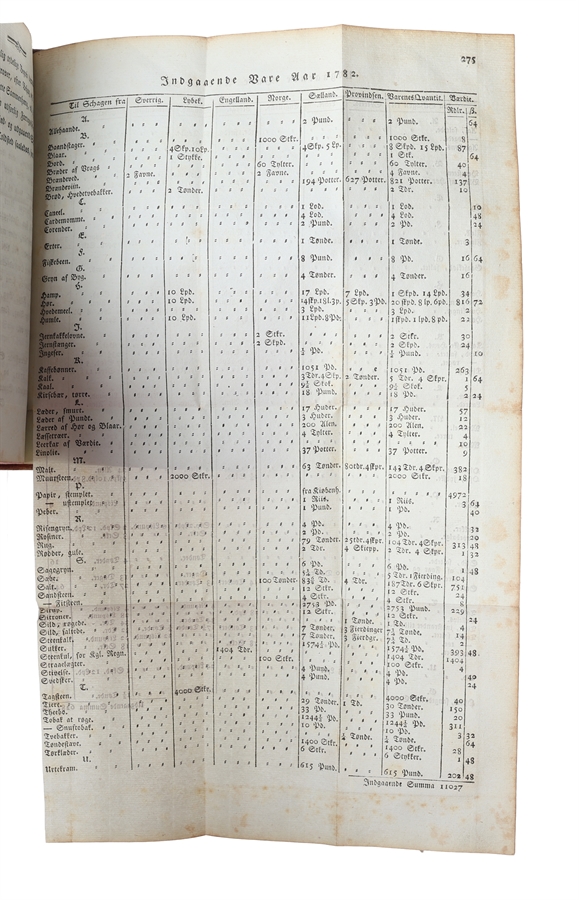 275
Indgaaende Vare Aar 1782.
Til Schagen fra Sverrig. Lybek. Engelland. Norge. Sælland. Provindsen. Varenes Qvantit. Værdie.
Rdlr. ß.
A.
Allehaande. 2 Pund. 2 Pund. 64
B.
Baandstager. 1000 Stkr. 1000 Stkr. 8
Blaar. 4Skp. 10Lp. 4Skp. 5 Lp. 8 Skpd. 15 Lpd. 87
1 Stykke. 1 Stk. 64
Bord. 60 Tylter. 60 Tylter. 40
Brøder af Vrags 2 Favne. 2 Favne. 4 Favne. 4
Brændeviin. 194 Potter. 627 Potter. 821 Potter. 137
Brød, Hvedetvebakker. 2 Tønder. 2 Tdr. 10
C.
Caneel. 1 Lod. 1 Lod. 10
Cardemomme. 4 Lod. 4 Lod. 48
Corender. 2 Pund. 2 Pd. 24
E.
Erter. 1 Tønde. 1 Tonde. 3
F.
Fiskebeen. 8 Pund. 8 Pd. 16 64
G.
Gryn af Byg. 4 Tønder. 4 Tønder. 16
H.
Hamp. 10 Lpd. 17 Lpd. 7 Lpd. 1 Skpd. 14 Lpd. 34
Hør. 10 Lpd. 5 Skp. 3 Pd. 816 72
Hvedemeel. 3 Lpd. 3 Lpd. 2
Humle. 10 Lpd. 11Lpd. 8Pd. 22
J.
Jernkakkelovne. 2 Stkr. 2 Stkr. 30
Jernstanger. 2 Skpd. 2 Skpd. 24
Ingefer. ½ Pd. ½ Pund. 10
K.
Kaffebønner. 1051 Pd. 1051 Pd. 263
Kalk. 3 Tdr. 4 Skp. 2 Tønder. 5 Tdr. 4 Skpr. 1 64
Kaal. 9½ Skok. 9½ Skok. 5
Kirsebær, tørre. 18 Pund. 18 Pd. 2 24
L.
Læder, smurt. 17 Huder. 17 Huder. 57
Læder af Pundt. 3 Huder. 3 Huder. 12
Lærred af Hør og Blaar. 200 Alen. 200 Alen. 22
4 Tylter. 4 Tylter. 4
Leerkar af Værdie. 10
Linolie. 37 Potter. 37 Potter. 9
M.
Malt. 63 Tønder. 80tdr. 4skpr. 143 Tdr. 4 Skpr. 382
Muursteen. 2000 Stkr. 2000 Stkr. 18
P.
Papir, stemplet. fra Kiøbenh. 4972
— ustemplet. 1 Riis. 1 Riis. 3 64
Peber. 1 Pund. 1 Pd. 40
R.
Risengryn. 4 Pd. 4 Pd. 32
Rosiner. 2 Pd. 2 Pd. 20
Rug. 79 Tønder. 25tdr. 4skpr. 104 Tdr. 4Skpr. 313 48
Rødder, gule. 2 Tdr. 4 Skiepp. 2 Tdr. 4 Skpr. 1 32
S.
Sagogryn. 6 Pd. 6 Pd. 1 48
Sæbe. 5¼ Td. 5 Tdr. 1 Fierding. 104
Salt. 100 Tønder. 83¾ Td. 4 Tdr. 187Tdr. 6 Skpr. 751
Sandsteen. 12 Stkr. 12 Stkr. 24
4 Stkr. 4 Stkr. 8
Sirup. 2753 Pd. 2753 Pund. 229
Sitroner. 12 Stkr. 12 Stkr. 24
Sild, røgede. 1 Tønde. 1 Td. 4
Sild, saltede. 7 Tønder. 3 Fierdinger 7¾ Tønde. 14
Steenkalk. 7 Tønder. 3 Fierdr. 7¾ Td. 2
Sukker. 1574½ Pd. 1574½ Pd. 393 48
Steenkul, for Kgl. Regn. 1404 Tdr. 1404 Tdr. 1404
Straaelægter. 100 Stkr. 100 Stkr. 4
Stivelse. 4 Pund. 4 Pd. 40
Svedsker. 4 Pund. 4 Pd. 24
T.
Tagsteen. 4000 Stkr. 4000 Stkr. 40
Tiere. 29 Tønder. 1 Td. 30 Tønder. 150
Theebo. 33 Pd. 33 Pund. 20
Tobak at røge. 1244½ Pd. 1244½ Pd. 311
— Snustobak. 10 Pd. 10 Pd. 3 32
Tvebakker. ¼ Tønde. ¼ Tonde. 64
Tøndestave. 1400 Stkr. 1400 Stkr. 28
Torklæder. 6 Stkr. 6 Stykker. 1 48
U.
Urtekram. 615 Pund. 615 Pund. 202 48
Indgaaende Summa 11027